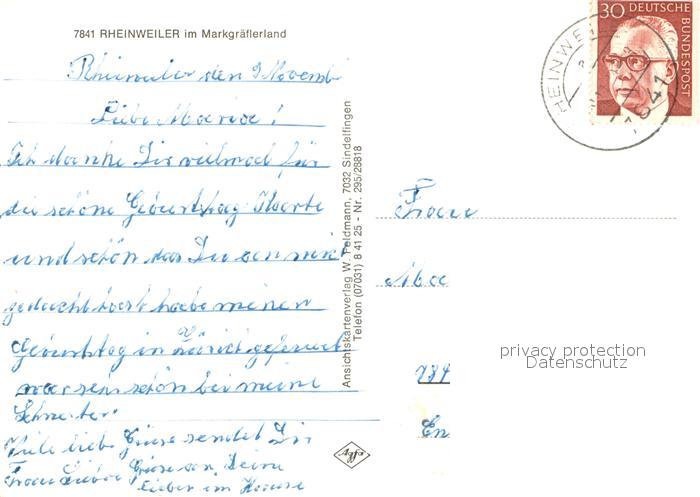 7841 RHEINWEILER im Markgräflerland
Rheinweiler den 9 Novemb
Liebe Maria!
Ich danke Dir vielmal für
die schöne Geburtstag Karte
und schön das Du an mich
gedacht hast habe meinen
Geburtstag in Zürich gefeiert
war sehr schön bei meine
Schwester.
Viele liebe Grüse sendet Dir
Frau Grüse an Deine
lieben im Hause
Ansichtskartenverlag W. Feldmann, 7032 Sindelfingen
Telefon (07031) 8 41 25 - Nr. 295/28818
Agfa
30 DEUTSCHE
BUNDESPOST
RHEINWEI
7841
Frau
Ma
784
En
privacy protection
Datenschutz